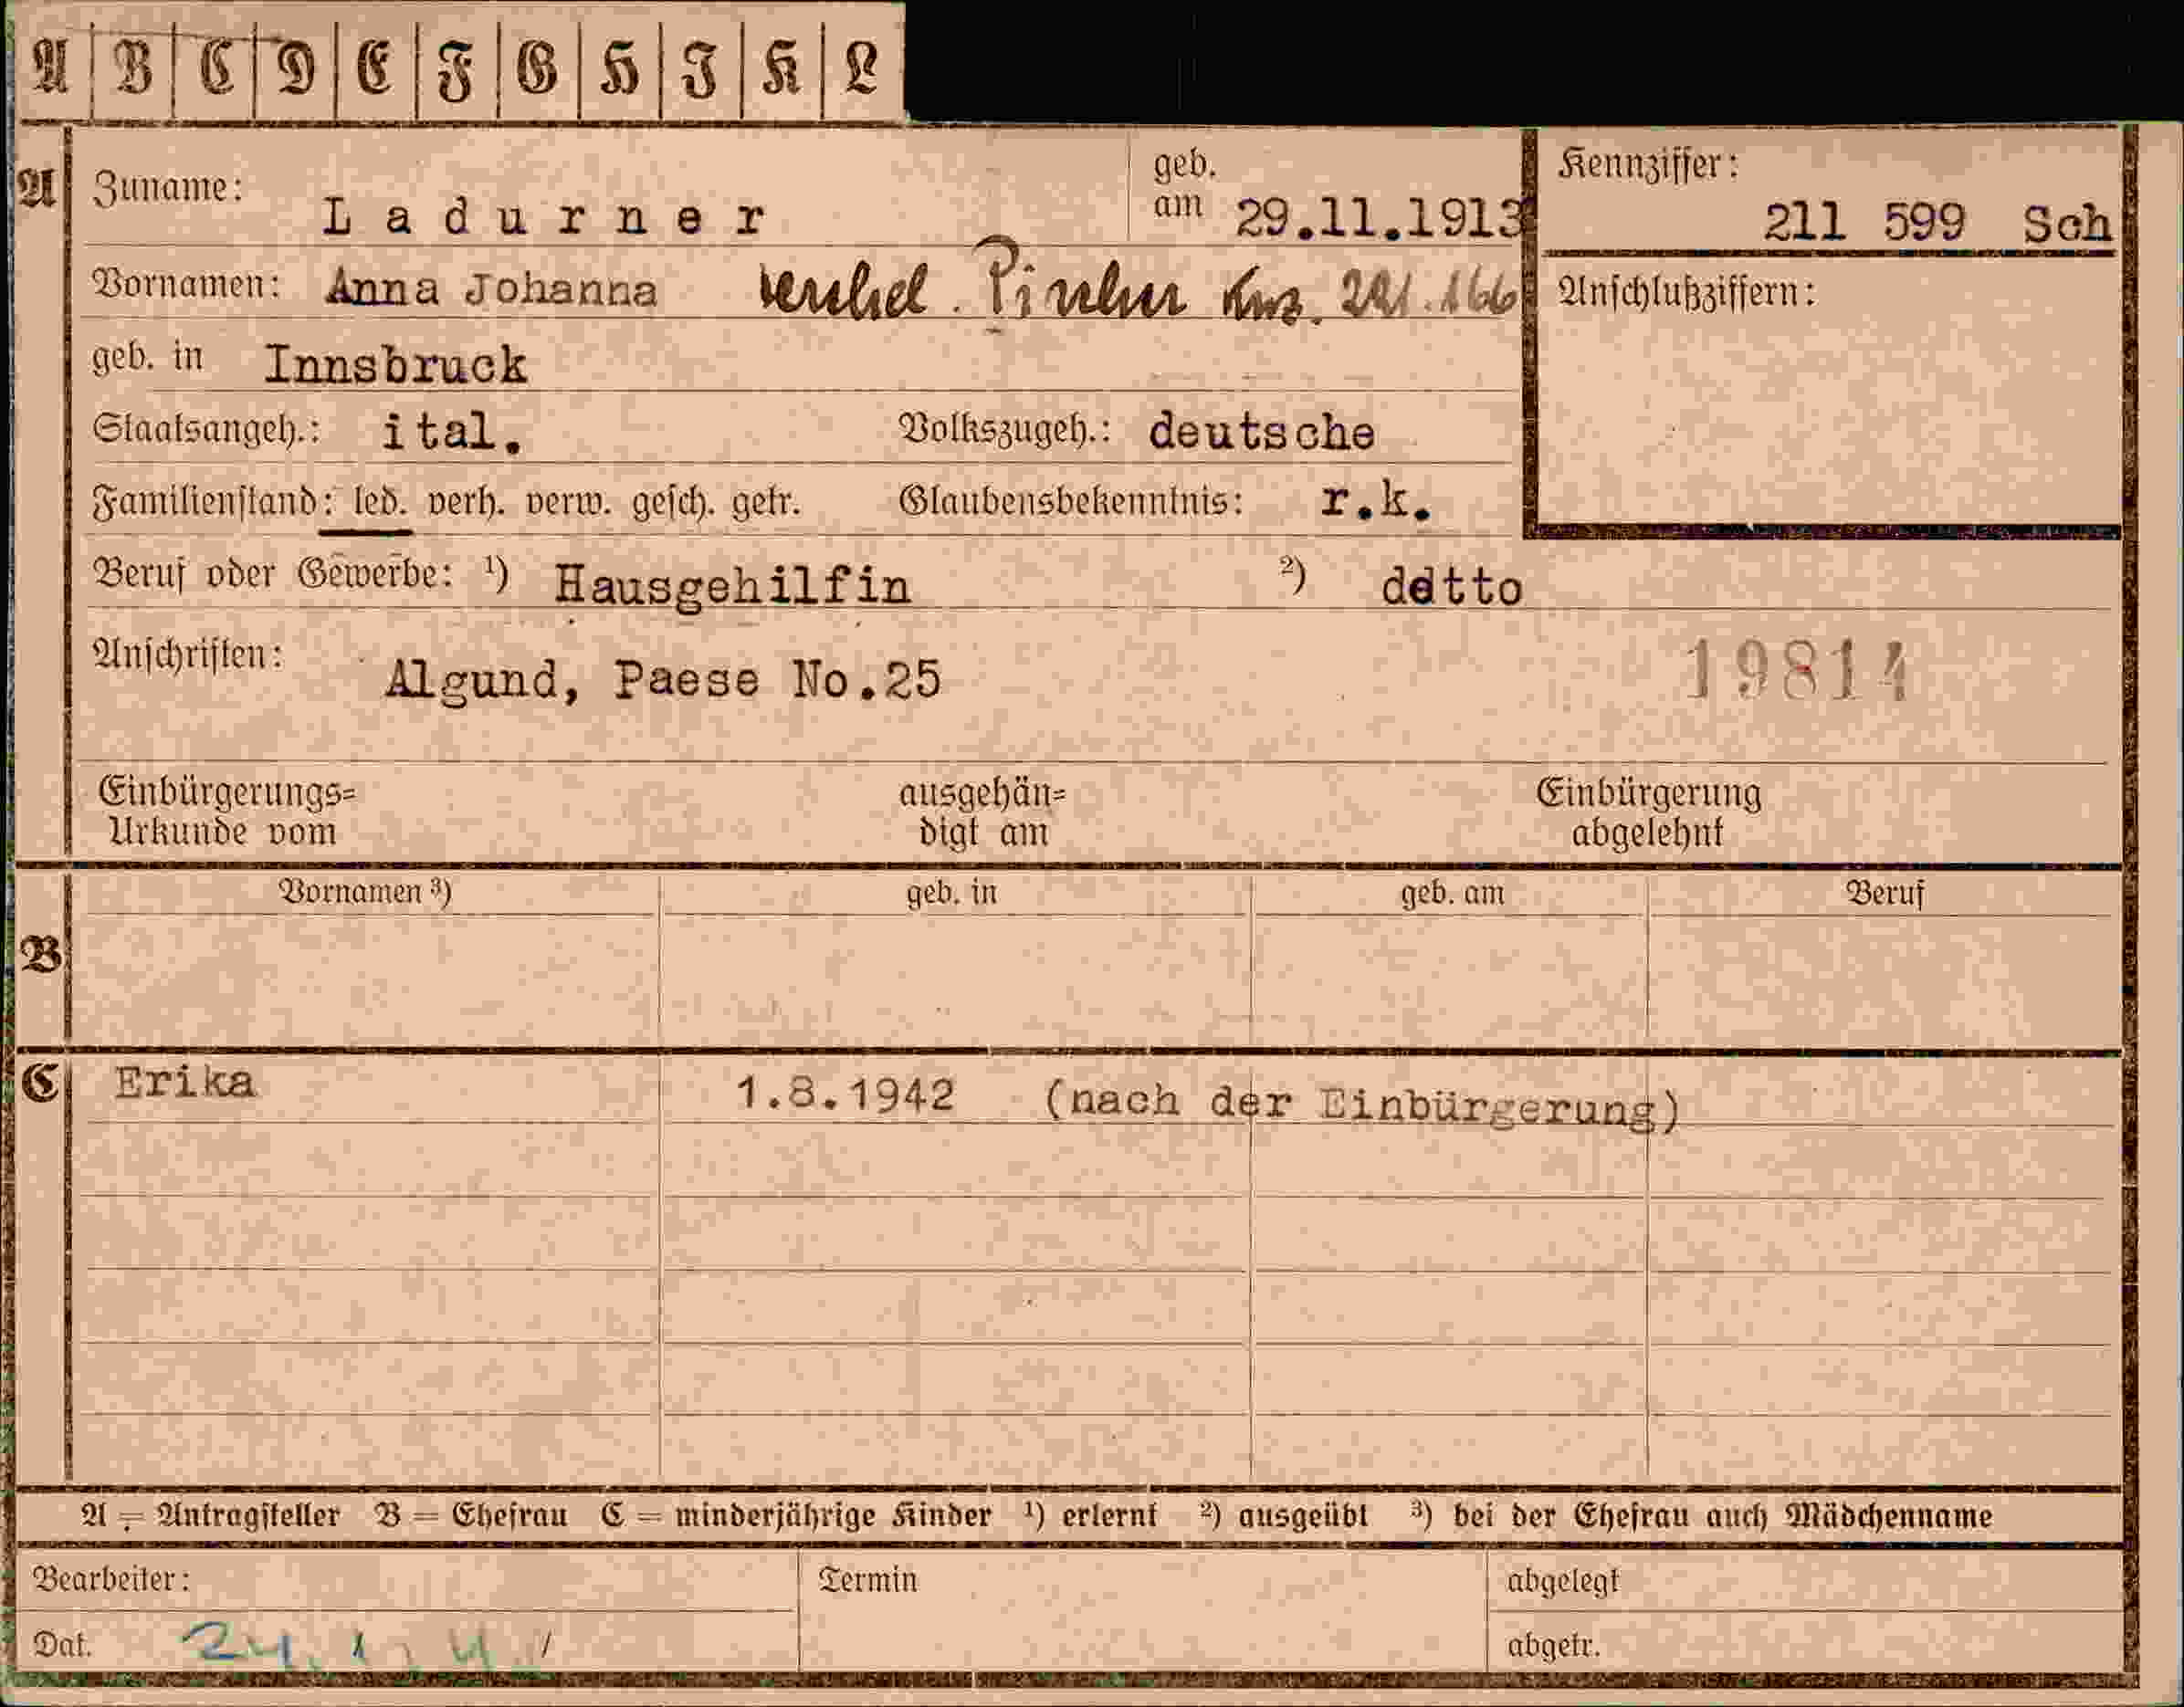 A B C D E F G H I K L
A Zuname: Ladurner geb. am 29.11.1913 Kennziffer: 211 599 Sch
Vornamen: Anna Johanna Pircher Knz. 221.166 Anschlußziffern:
geb. in Innsbruck
Staatsangeh.: ital. Volkszugeh.: deutsche
Familienstand: led. verh. verw. gesch. getr. Glaubensbekenntnis: r.k.
Beruf oder Gewerbe: ¹) Hausgehilfin ²) detto
Anschriften: Algund, Paese No.25 19814
Einbürgerungs= ausgehän= Einbürgerung
Urkunde vom digt am abgelehnt
Vornamen ³) geb. in geb. am Beruf
B
C Erika 1.8.1942 (nach der Einbürgerung)
A = Antragsteller B = Ehefrau C = minderjährige Kinder ¹) erlernt ²) ausgeübt ³) bei der Ehefrau auch Mädchenname
Bearbeiter: Termin abgelegt
Dat. abgetr.